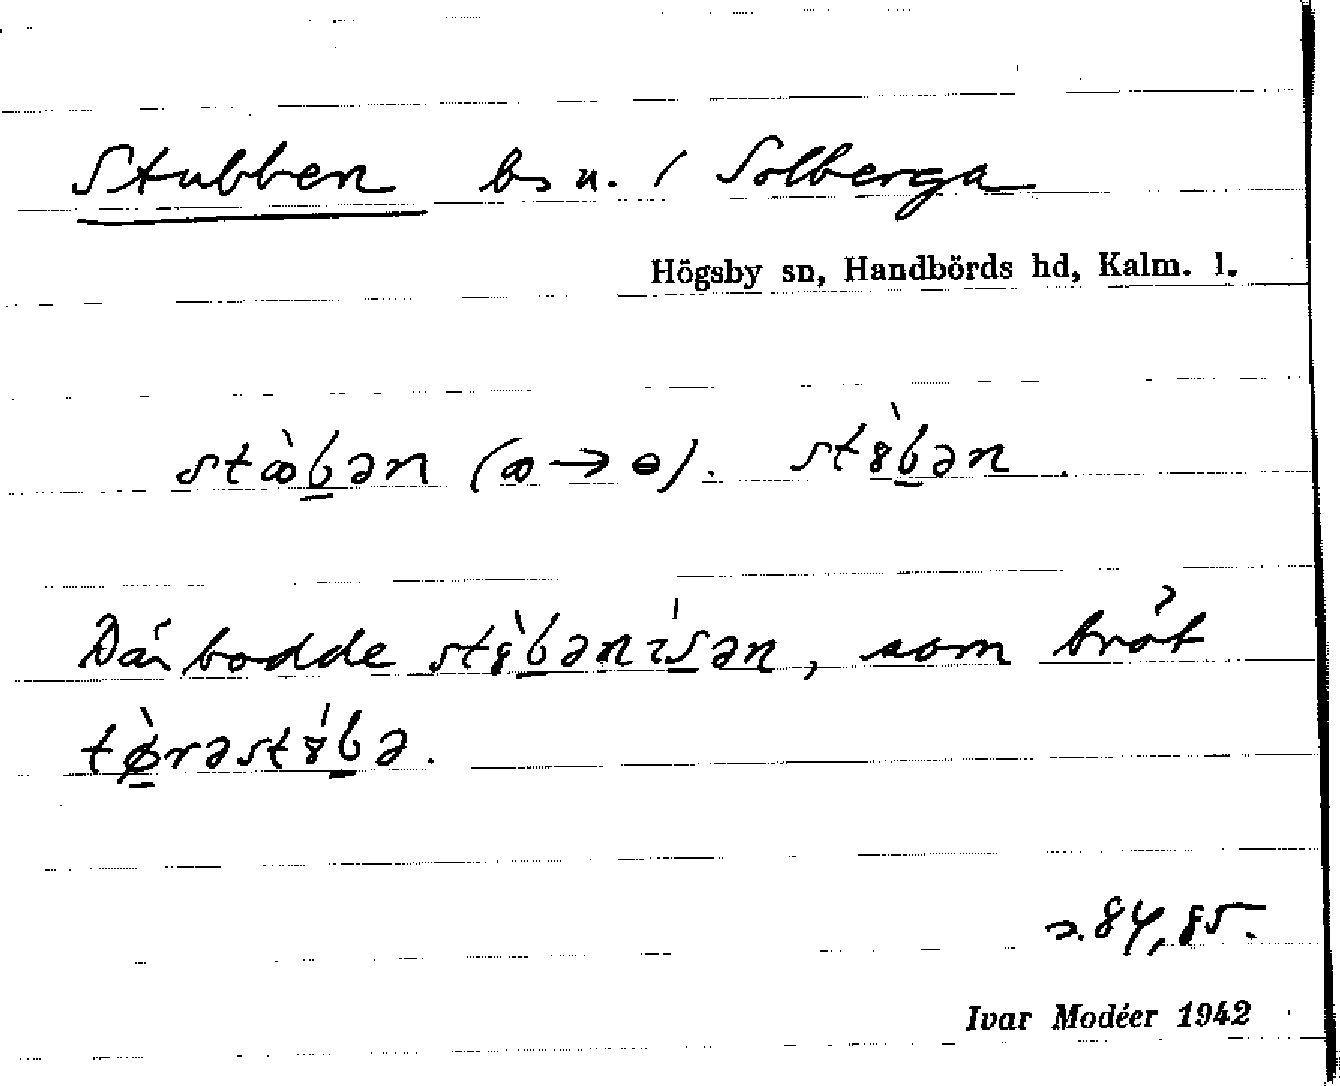 Stubben bs u. / Solberga
Högsby sn, Handbörds hd, Kalm. l.
stꝏ̀b̲ən (ꝏ → ɵ). st8̀b̲ən.
Där bodde st8̀b̲ənɪs̲ən, som bröt
tø̲̀rəst8́b̲ə.
s. 84, 85.
Ivar Modéer 1942